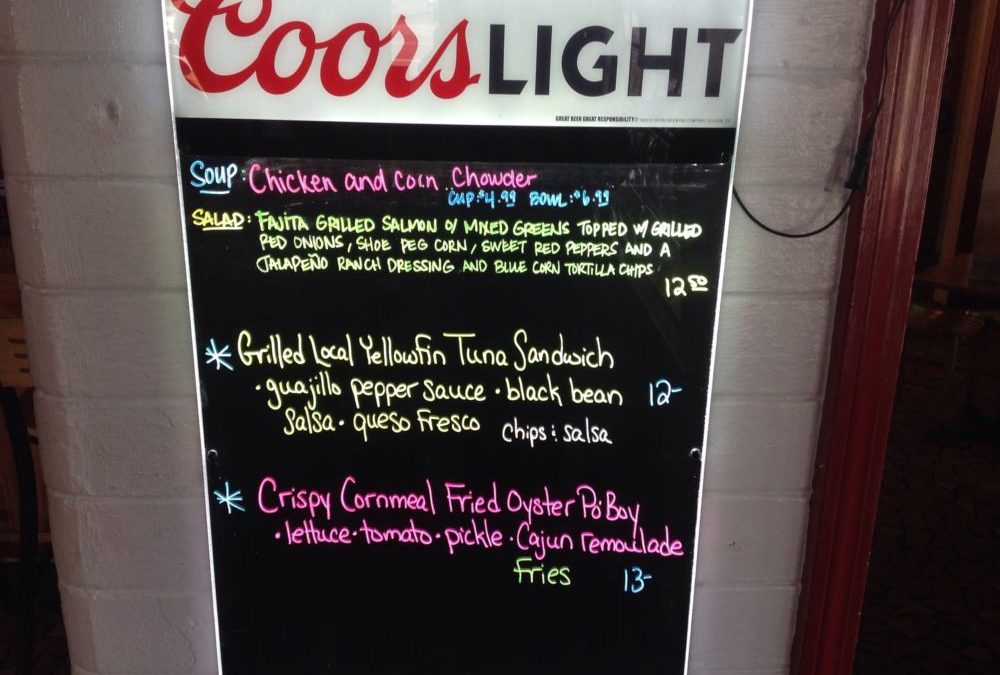 Coors LIGHT
GREAT BEER GREAT RESPONSIBILITY
Soup: Chicken and Corn Chowder
CUP: $4.99 BOWL: $6.99
SALAD: FAJITA GRILLED SALMON O/ MIXED GREENS TOPPED W/ GRILLED
RED ONIONS, SHOE PEG CORN, SWEET RED PEPPERS AND A
JALAPEÑO RANCH DRESSING AND BLUE CORN TORTILLA CHIPS
12 50
* Grilled Local Yellowfin Tuna Sandwich
· guajillo pepper sauce · black bean 12-
Salsa · queso Fresco chips & salsa
* Crispy Cornmeal Fried Oyster Po'Boy
· lettuce · tomato · pickle · Cajun remoulade
Fries 13-